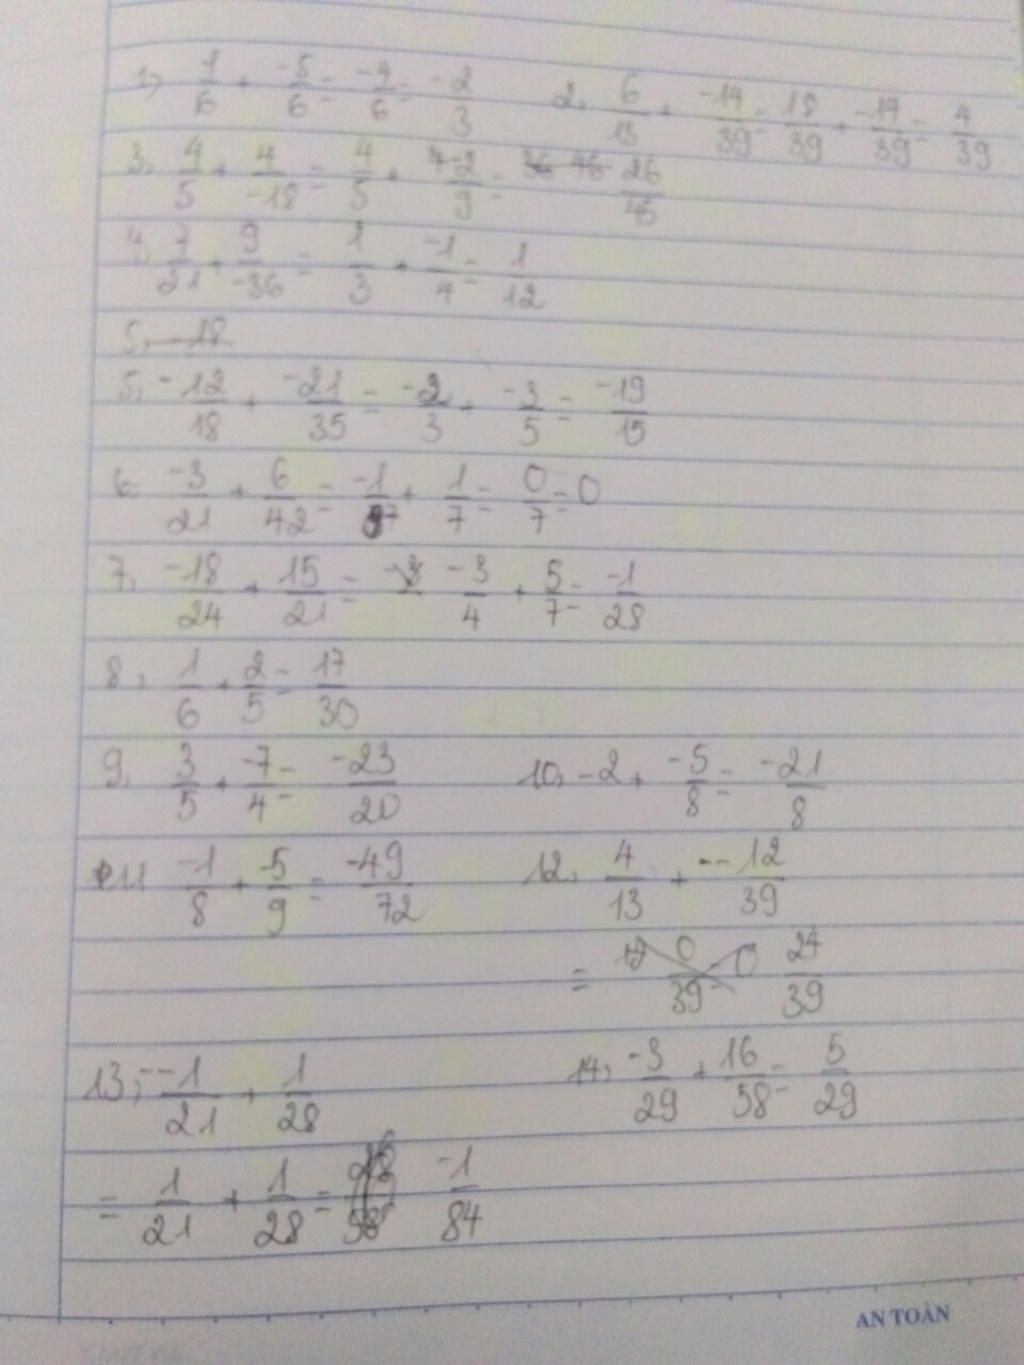 1, 1/6 + -5/6 = -4/6 = -2/3 2, 6/13 + -14/39 = 18/39 + -14/39 = 4/39
3, 4/5 + 4/-18 = 4/5 + -2/9 = 26/45
4, 7/21 + 9/-36 = 1/3 + -1/4 = 1/12
5, -18
5, -12/18 + -21/35 = -2/3 + -3/5 = -19/15
6 -3/21 + 6/42 = -1/7 + 1/7 = 0/7 = 0
7, -18/24 + 15/21 = -3/4 + 5/7 = -1/28
8, 1/6 + 2/5 = 17/30
9, 3/5 + -7/4 = -23/20 10, -2 + -5/8 = -21/8
11 -1/8 + -5/9 = -49/72 12, 4/13 + --12/39
= 0/39 = 0 24/39
13, --1/21 + 1/28 14, -3/29 + 16/58 = 5/29
= 1/21 + 1/28 = -1/84
AN TOÀN